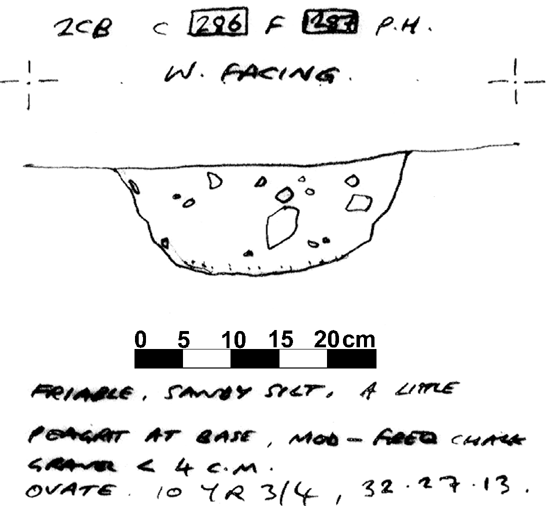 2CB C 286 F 287 P.H.
W. FACING.
0 5 10 15 20cm
FRIABLE, SANDY SILT, A LITTLE
PEAGRIT AT BASE, MOD-FREQ CHALK
GRAVEL < 4 C.M.
OVATE. 10 YR 3/4, 32.27.13.